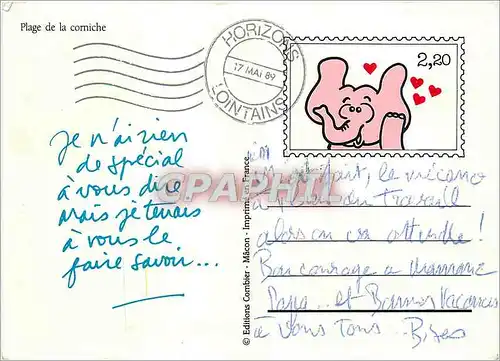 Plage de la corniche
HORIZONS
17 MAI 89
LOINTAINS
2,20
Je n'ai rien
de spécial
à vous dire
mais je tenais
à vous le
faire savoir...
CPAPHIL
© Editions Combier - Mâcon - Imprimé en France
le mécano
du travail
alors on en
Bon courage a maman
Papa... et Bonnes Vacances
à vous Tous. Bises